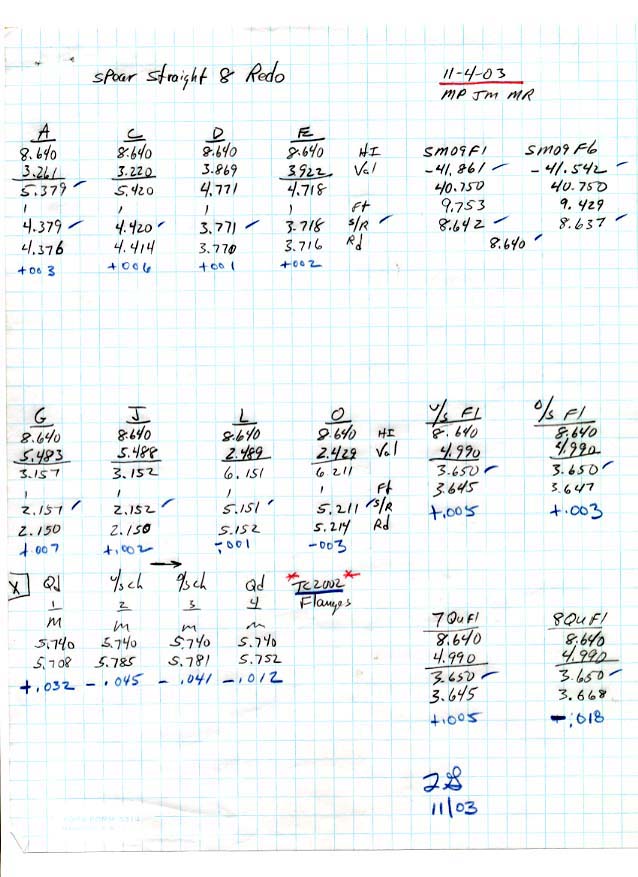 spear straight 8 Redo 11-4-03
MP JM MR
A C D E
8.640 8.640 8.640 8.640 HI SM09F1 SM09F6
3.261 3.220 3.869 3.922 Val -41.861 -41.542
5.379 5.420 4.771 4.718 40.750 40.750
1 1 1 1 Ft 9.753 9.429
4.379 4.420 3.771 3.718 S/R 8.642 8.637
4.376 4.414 3.770 3.716 Rd 8.640
+003 +006 +001 +002
G J L O U/S F1 D/S F1
8.640 8.640 8.640 8.640 HI 8.640 8.640
5.483 5.488 2.489 2.429 Val 4.990 4.990
3.157 3.152 6.151 6.211 3.650 3.650
1 1 1 1 Ft 3.645 3.647
2.157 2.152 5.151 5.211 S/R +.005 +.003
2.150 2.150 5.152 5.214 Rd
+.007 +.002 -.001 -003
X Qd Y/sch 9/sch Qd *TC2002*
1 2 3 4 Flanges
m m m m 7QUF1 8QUF1
5.740 5.740 5.740 5.740 8.640 8.640
5.708 5.785 5.781 5.752 4.990 4.990
+.032 -.045 -.041 -.012 3.650 3.650
3.645 3.668
+.005 -.018
11/03